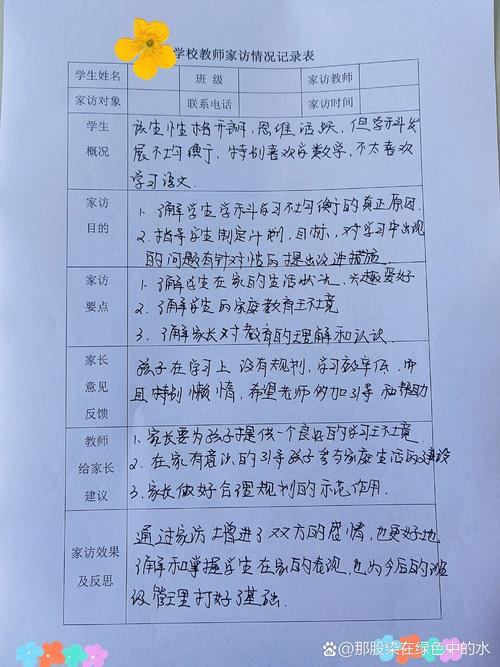 学校教师家访情况记录表
学生姓名 班 级 家访教师
家访对象 联系电话 家访时间
学生
概况
该生性格开朗,思维活跃,但学科发
展不均衡,特别喜欢学数学,不太喜欢
学习语文.
家访
目的
1. 了解学生学科学习不均衡的真正原因.
2. 指导学生制定计划,目标,对学习中出现
的问题有针对性后提出改进措施.
家访
要点
1. 了解学生在家的生活状况,兴趣爱好
2. 了解学生的家庭教育环境
3. 了解家长对教育的理解和认识.
家长
意见
反馈
孩子在学习上没有规划,学习效率低,而
且特别懒惰,希望老师多加引导和帮助
教师
给家长
建议
1. 家长要为孩子提供一个良好的学习环境.
2. 在家有意识的引导孩子参与家庭生活的建设
3. 家长做好合理规划的示范作用.
家访效果
及反思
通过家访增进了双方的感情,也更好地
了解和掌握学生在家的表现,也为今后的班
级管理打好了基础.
@那股染在绿色中的水